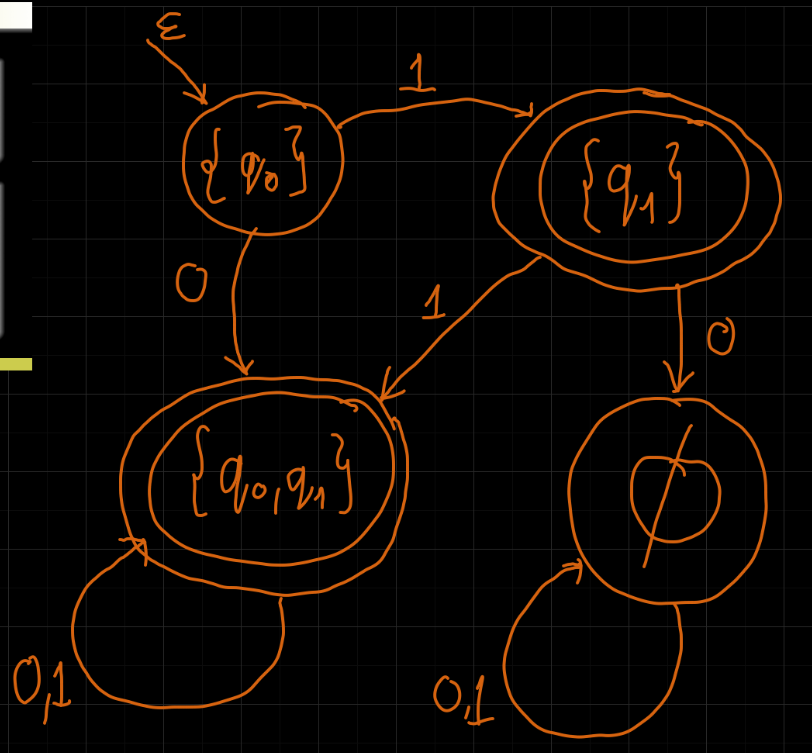 ε
1
{q₀}
{q₁}
0
1
0
{q₀,q₁}
∅
0,1
0,1